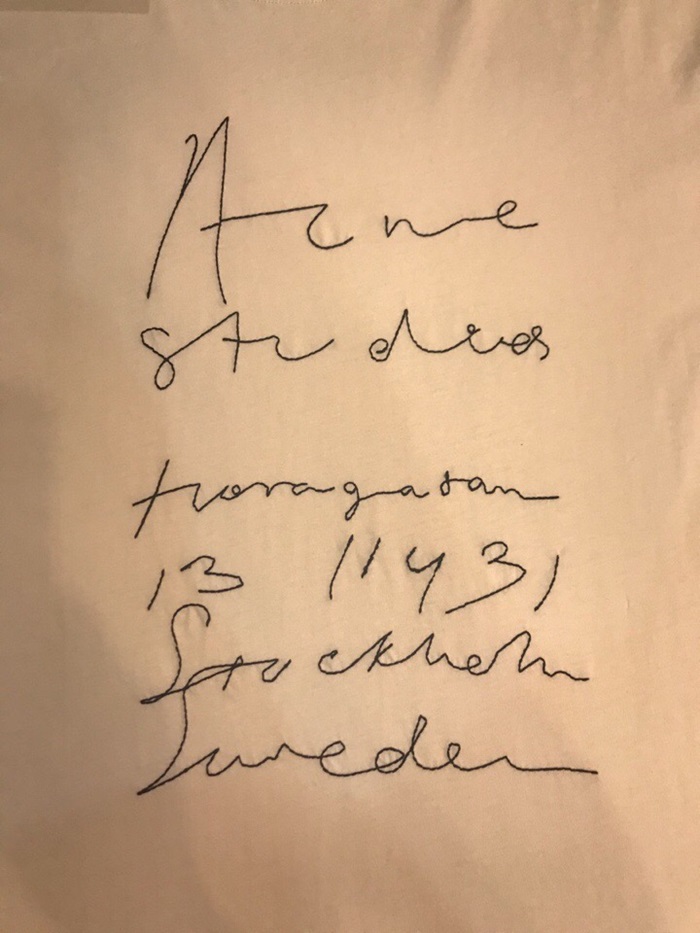 Acne
studios
torsgatan
13 11431
Stockholm
Sweden